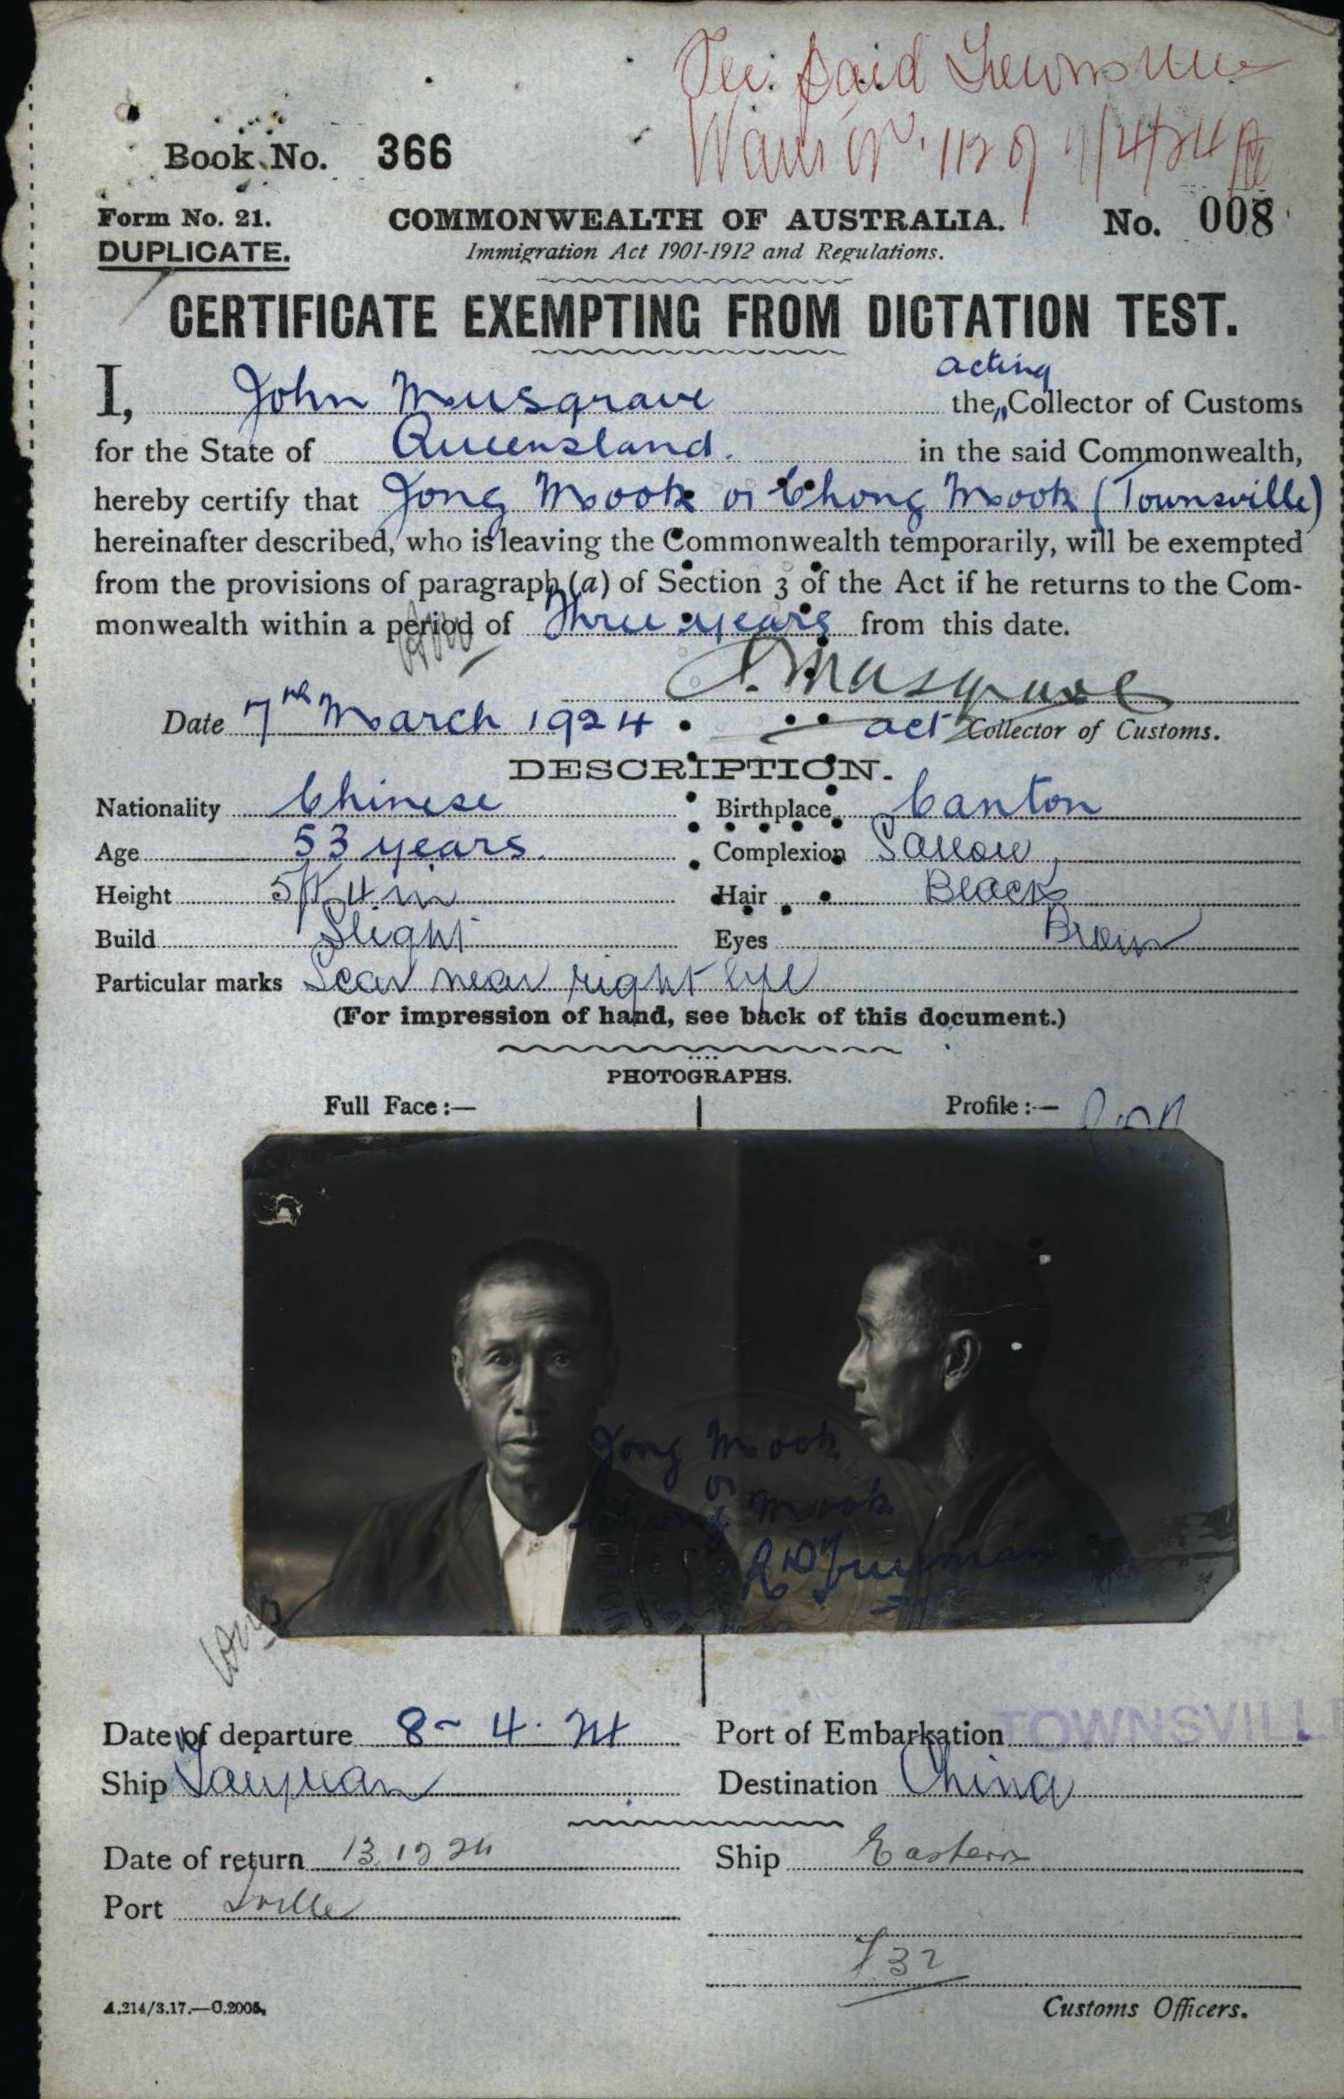 Fee paid Townsville
Book No. 366
Form No. 21.
COMMONWEALTH OF AUSTRALIA.
No. 008
DUPLICATE.
Immigration Act 1901-1912 and Regulations.
CERTIFICATE EXEMPTING FROM DICTATION TEST.
acting
I, John Musgrave the Collector of Customs
for the State of Queensland. in the said Commonwealth,
hereby certify that Jong Mook or Chong Mook (Townsville)
hereinafter described, who is leaving the Commonwealth temporarily, will be exempted
from the provisions of paragraph (a) of Section 3 of the Act if he returns to the Com-
monwealth within a period of Three years from this date.
J. Musgrave
Date 7th March 1924 act Collector of Customs.
DESCRIPTION.
Nationality Chinese Birthplace Canton
Age 53 years. Complexion Sallow
Height 5ft 4 in Hair Black
Build Slight Eyes Brown
Particular marks Scar near right eye
(For impression of hand, see back of this document.)
PHOTOGRAPHS.
Full Face:— Profile:—
Jong Mook
or
Chong Mook
Date of departure 8-4.24 Port of Embarkation TOWNSVILL
Ship Taiyuan Destination China
Date of return 13.12.24 Ship Eastern
Port Tville
732
A.214/3.17.—C.2005.
Customs Officers.